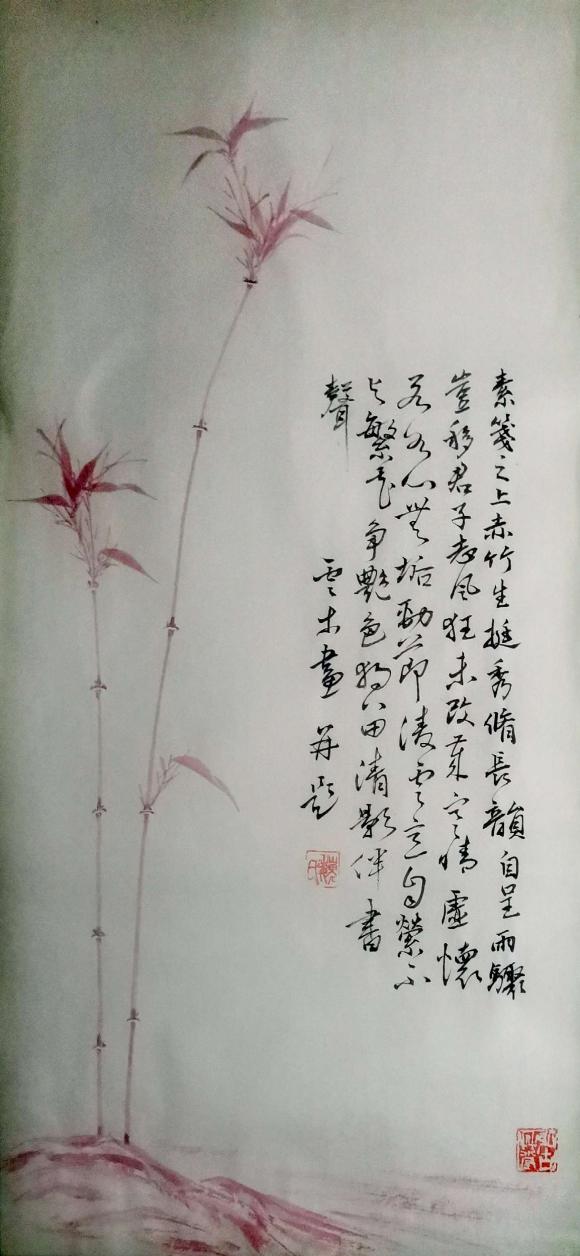 素箋之上赤竹生挺秀脩長韻自呈雨驟
豈移君子志風狂未改歲寒情虛懷
若谷心無垢勁節凌雲意自縈不
与繁花争艷色獨留清影伴書
聲
雲木畫并題